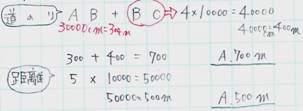 道のり AB + BC ⇒ 4×10000=40000
30000cm=300m 40000cm=400m
300+400=700 A.700m
距離 5×10000=50000
50000=500m A.500m